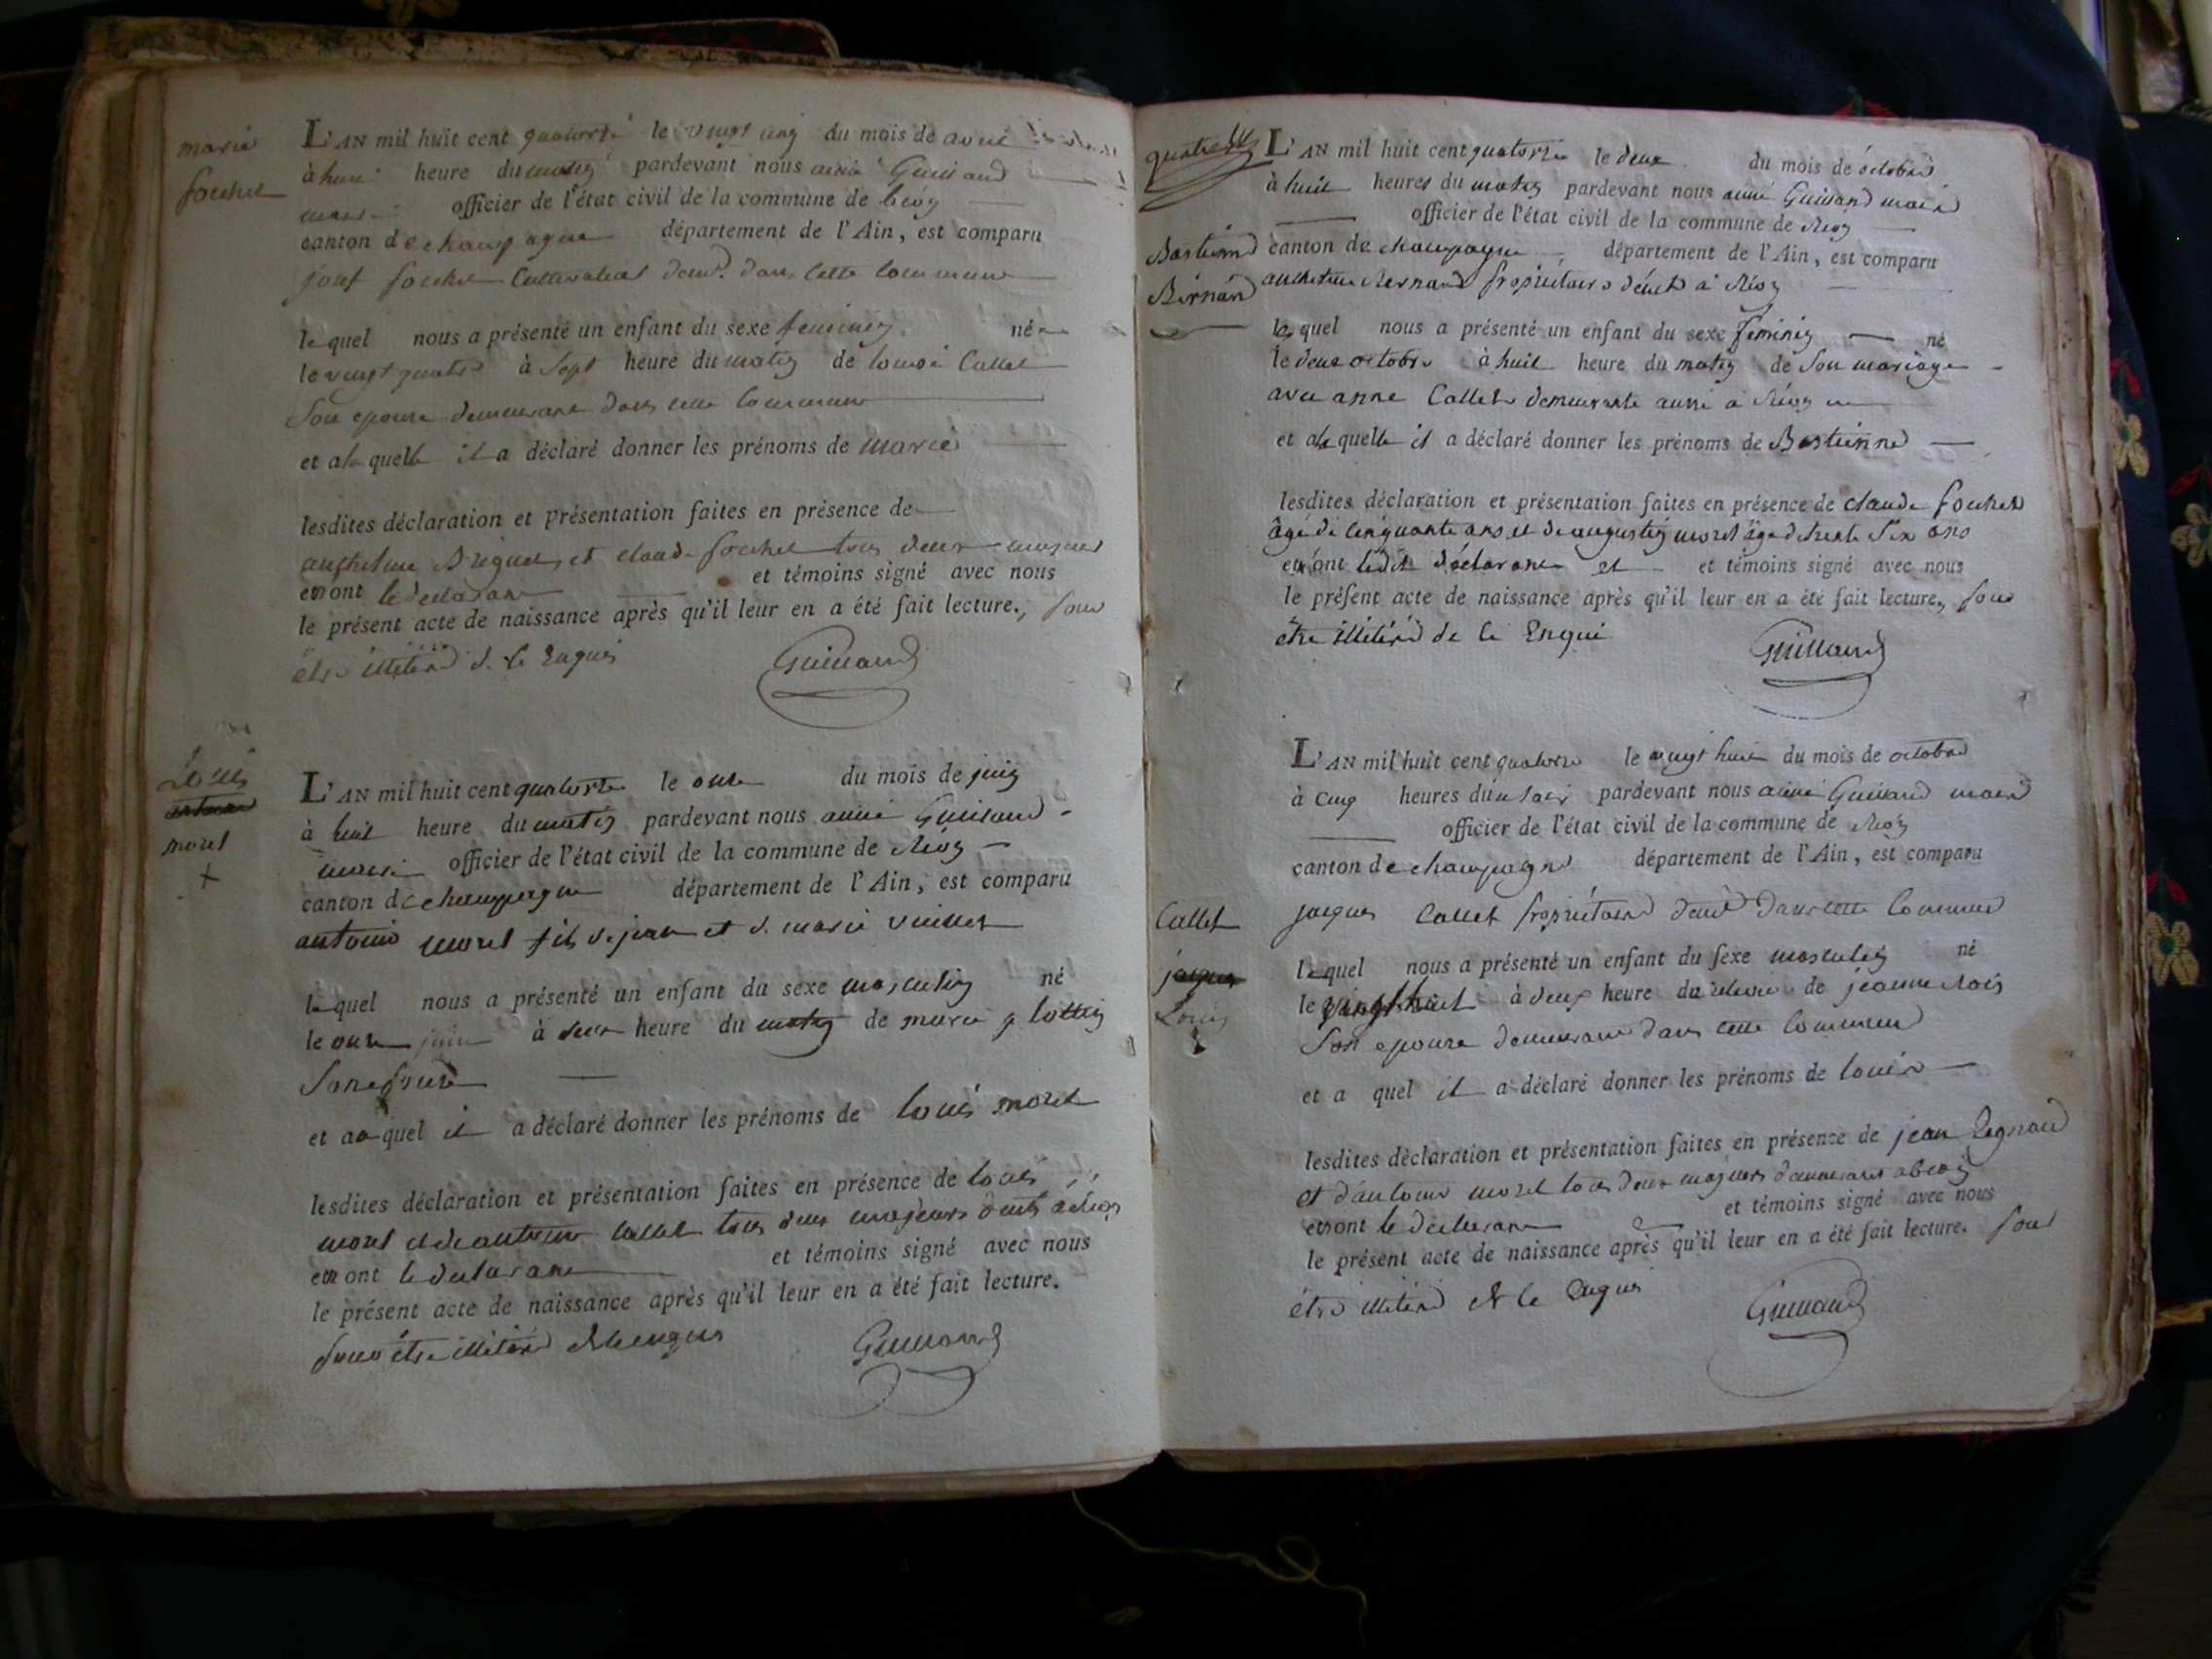 marie
fouchet
L'AN mil huit cent quatorze le vingt cinq du mois de avril
à huit heure du matin pardevant nous aimé Guilland
maire officier de l'état civil de la commune de béon
canton de champagne département de l'Ain, est comparu
fouchet Cultivateur demt dans cette Commune
le quel nous a présenté un enfant du sexe feminin née
le vingt quatre à Sept heure du matin de Callet
Son epouse demeurant dans cette Commune
et a la quelle il a déclaré donner les prénoms de marie
lesdites déclaration et présentation faites en présence de
anthelme et claude fouchet tous deux majeurs
et ont le declarant et témoins signé avec nous
le présent acte de naissance après qu'il leur en a été fait lecture, pour
être illitéré de le Enquis Guilland
Louis
moret
+
L'AN mil huit cent quatorze le onze du mois de juin
à huit heure du matin pardevant nous aimé Guilland
maire officier de l'état civil de la commune de Béon
canton de champagne département de l'Ain, est comparu
antoine moret fils de jean et de marie
le quel nous a présenté un enfant du sexe masculin né
le onze juin à deux heure du matin de marie
Son epouse
et au quel il a déclaré donner les prénoms de Louis moret
lesdites déclaration et présentation faites en présence de Louis
moret et de callet tous deux majeurs
et ont le declarant et témoins signé avec nous
le présent acte de naissance après qu'il leur en a été fait lecture.
pour être illitéré de le enquis Guilland
Bastienne
Bernard
L'AN mil huit cent quatorze le deux du mois de octobre
à huit heures du matin pardevant nous aimé Guilland maire
officier de l'état civil de la commune de Béon
canton de champagne département de l'Ain, est comparu
anthelme Bernard propriétaire demt à Béon
le quel nous a présenté un enfant du sexe féminin né
le deux octobre à huit heure du matin de Son mariage
avec anne Callet demeurante aussi à Béon
et a la quelle il a déclaré donner les prénoms de Bastienne
lesdites déclaration et présentation faites en présence de claude fouchet
âgé de cinquante ans et de augustin moret âgé de trente six ans
et ont ledit déclarant et et témoins signé avec nous
le présent acte de naissance après qu'il leur en a été fait lecture, pour
être illitéré de le Enquis
Guilland
Callet
jacques
Louis
L'AN mil huit cent quatorze le vingt huit du mois de octobre
à cinq heures du soir pardevant nous aimé Guilland maire
officier de l'état civil de la commune de Béon
canton de champagne département de l'Ain, est comparu
jacques Callet propriétaire demt dans cette Commune
le quel nous a présenté un enfant du sexe masculin né
le vingt huit à deux heure du de jeanne
Son epouse demeurant dans cette Commune
et a quel il a déclaré donner les prénoms de Louis
lesdites déclaration et présentation faites en présence de jean
et d'antoine moret tous deux majeurs demeurant a béon
et ont le declarant et témoins signé avec nous
le présent acte de naissance après qu'il leur en a été fait lecture. pour
être illitéré de le Enquis
Guilland